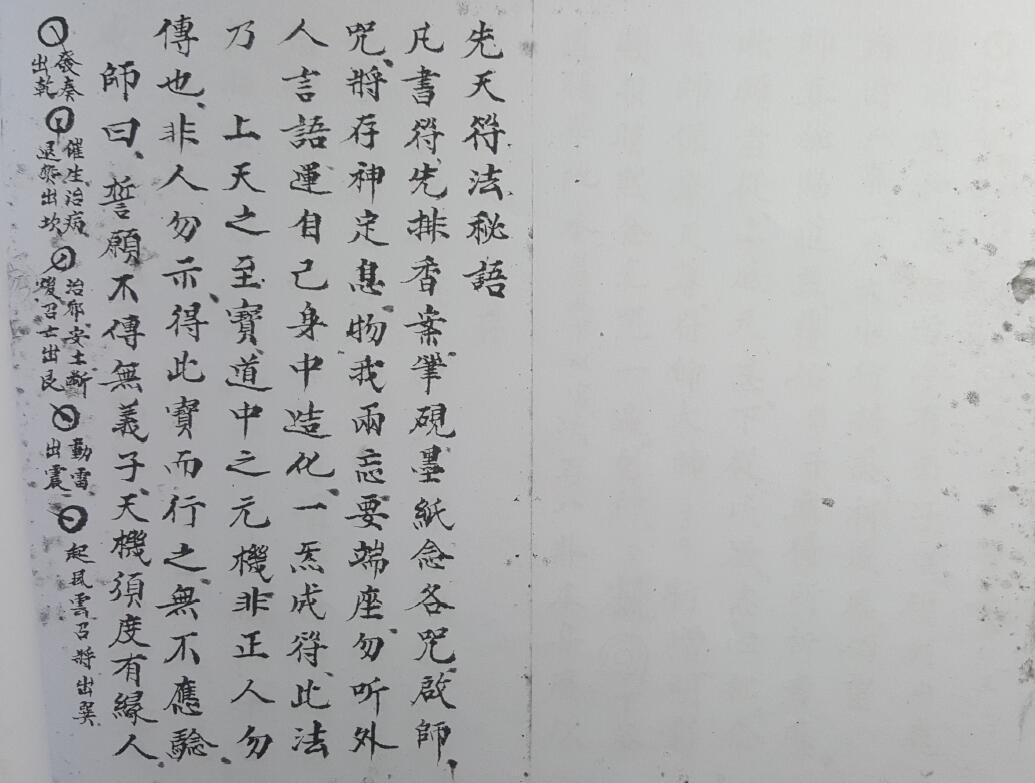 先天符法秘語
凡書符先排香案筆硯墨紙念各咒啟師、
咒、將存神定息、物我兩忘要端座、勿听外
人言語運自己身中造化、一炁成符、此法
乃　上天之至寶、道中之元機、非正人勿
傳也、非人勿示、得此寶而行之、無不應驗、
師曰、誓願不傳無義子、天機須度有緣人
發奏出乾
催生治病、退煞出坎
治邪安土、斷出艮
動雷出震
起風雲召將出巽